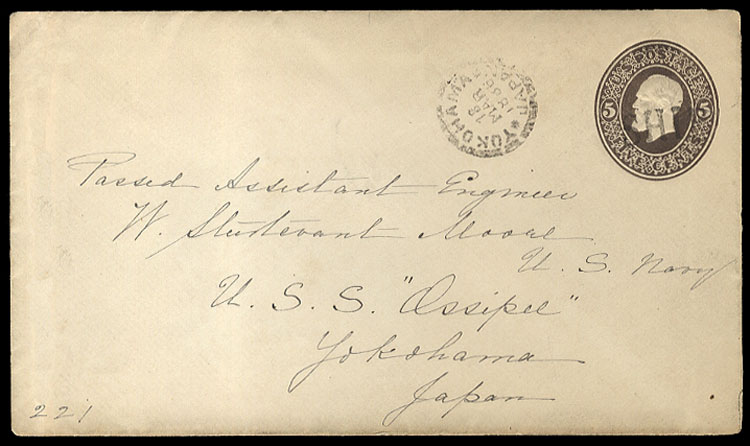 YOKOHAMA JAPAN
28
MAR
1886
5 5
FIVE CENTS
H
Passed Assistant Engineer
W. Sturtevant Moore
U. S. Navy
U. S. S. "Ossipee"
Yokohama
Japan
221